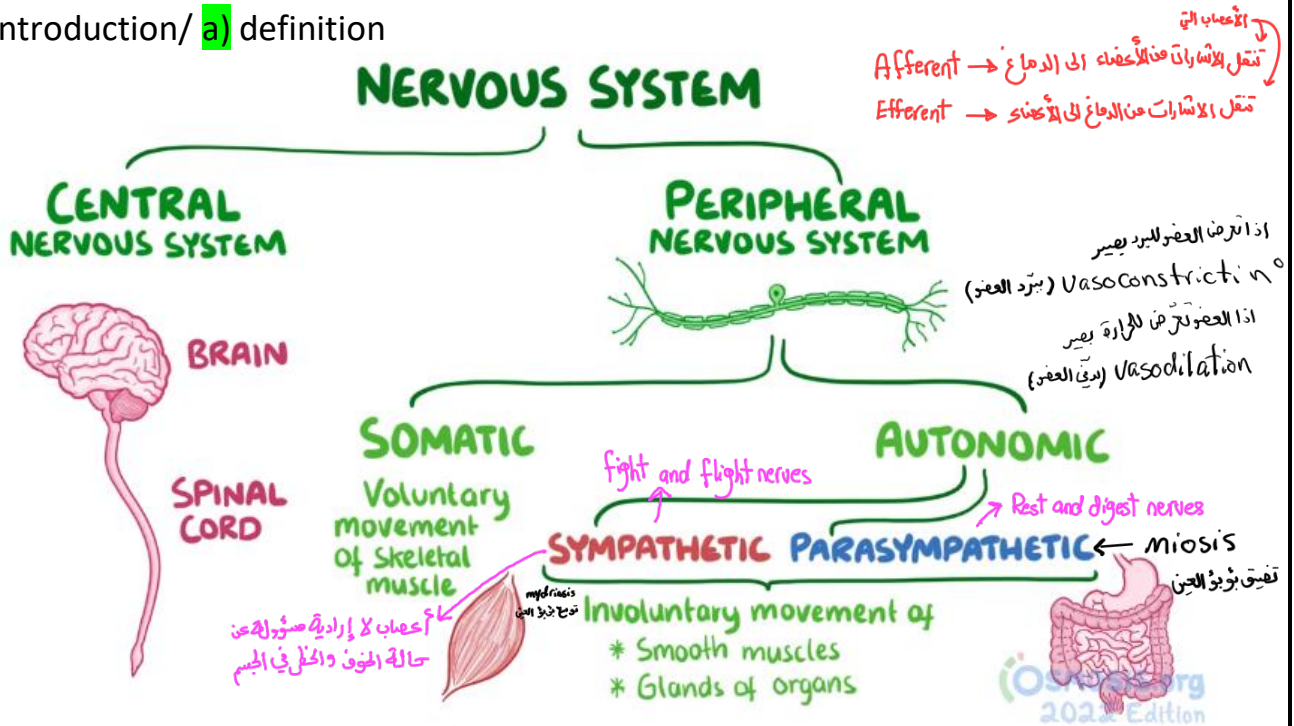 ntroduction/ a) definition
الأعصاب التي
Afferent → تنقل الاشارات من الأعضاء الى الدماغ
Efferent → تنقل الاشارات من الدماغ الى الأعضاء
NERVOUS SYSTEM
CENTRAL
NERVOUS SYSTEM
PERIPHERAL
NERVOUS SYSTEM
اذا تعرض العضو للبرد بصير
vasoconstrictin (ببرّد العضو)
اذا العضو تعرّض للحرارة بصير
vasodilation (بدفّي العضو)
BRAIN
SPINAL
CORD
SOMATIC
Voluntary
movement
of skeletal
muscle
AUTONOMIC
fight and flight nerves
Rest and digest nerves
SYMPATHETIC
PARASYMPATHETIC ← miosis
تضيق بؤبؤ العين
mydriasis
توسع بؤبؤ العين
أعصاب لا إرادية مسؤولة عن
حالة الخوف والخطر في الجسم
Involuntary movement of
* Smooth muscles
* Glands of organs
Osmosis.org
2022 Edition